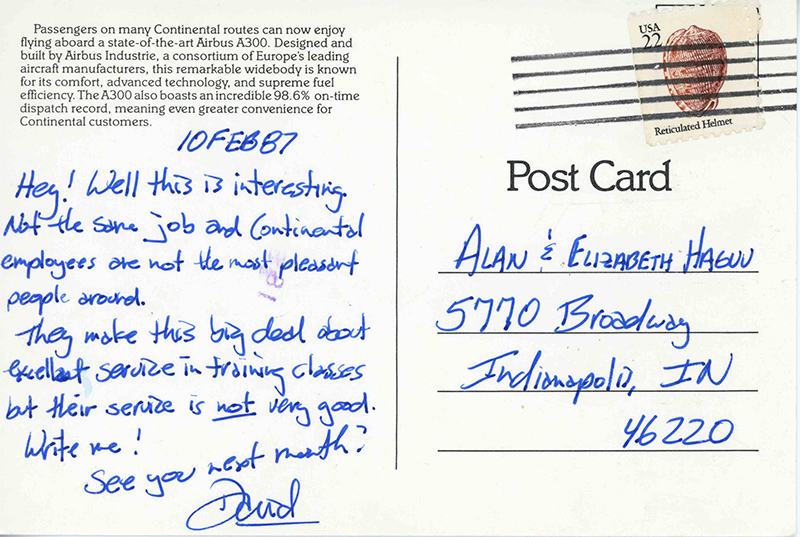 Passengers on many Continental routes can now enjoy
flying aboard a state-of-the-art Airbus A300. Designed and
built by Airbus Industrie, a consortium of Europe's leading
aircraft manufacturers, this remarkable widebody is known
for its comfort, advanced technology, and supreme fuel
efficiency. The A300 also boasts an incredible 98.6% on-time
dispatch record, meaning even greater convenience for
Continental customers.
10 FEB 87
Hey! Well this is interesting.
Not the same job and Continental
employees are not the most pleasant
people around.
They make this big deal about
excellent service in training classes
but their service is not very good.
Write me!
See you next month?
David
USA
22
Reticulated Helmet
Post Card
ALAN & ELIZABETH
5770 Broadway
Indianapolis, IN
46220